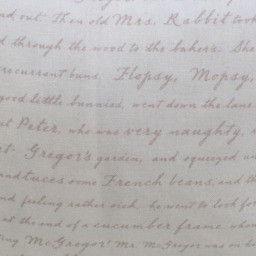 and out. Then old Mrs. Rabbit took
d through the wood to the baker's. She
recurrant buns. Flopsy, Mopsy,
good little bunnies, went down the lane
ut Peter, who was very naughty,
Gregor's garden, and squeezed un
and some French beans, and th
nd feeling rather sick, he went to look for
at the end of a cucumber frame, whom
ting McGregor! Mr. McGregor was on h